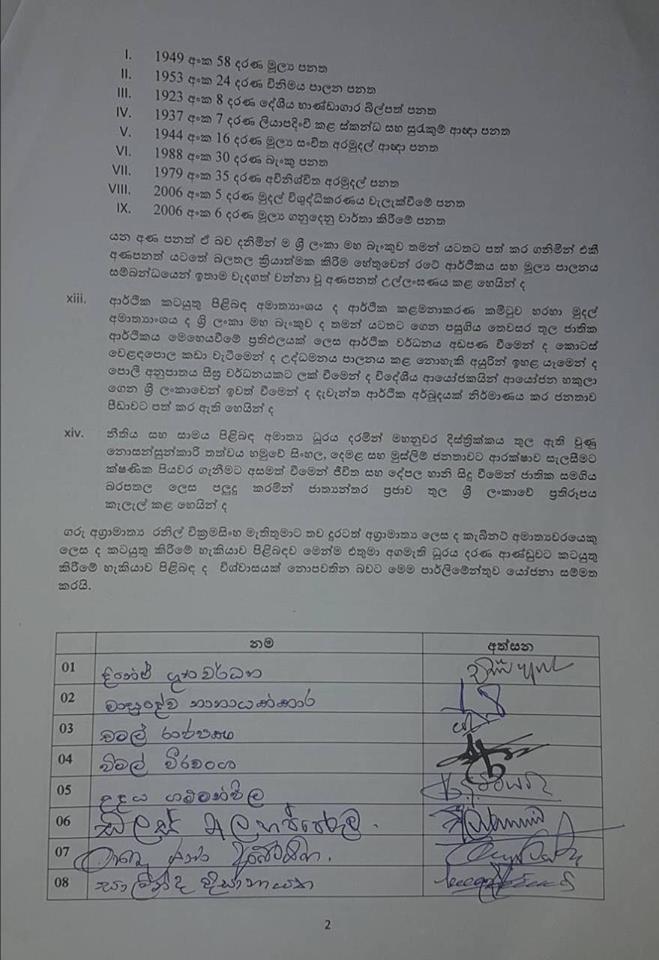 I. 1949 අංක 58 දරණ මූල්‍ය පනත
II. 1953 අංක 24 දරණ විනිමය පාලන පනත
III. 1923 අංක 8 දරණ දේශීය භාණ්ඩාගාර බිල්පත් පනත
IV. 1937 අංක 7 දරණ ලියාපදිංචි කළ ස්කන්ධ සහ සුරැකුම් ආඥා පනත
V. 1944 අංක 16 දරණ මූල්‍ය සංචිත අරමුදල් ආඥා පනත
VI. 1988 අංක 30 දරණ බැංකු පනත
VII. 1979 අංක 35 දරණ අවිනිශ්චිත අරමුදල් පනත
VIII. 2006 අංක 5 දරණ මුදල් විශුද්ධිකරණය වැලැක්වීමේ පනත
IX. 2006 අංක 6 දරණ මූල්‍ය ගනුදෙනු වාර්තා කිරීමේ පනත
යන අණ පනත් ඒ බව දනිමින් ම ශ්‍රී ලංකා මහ බැංකුව තමන් යටතට පත් කර ගනිමින් එකී
අණපනත් යටතේ බලතල ක්‍රියාත්මක කිරීම හේතුවෙන් රටේ ආර්ථිකය සහ මූල්‍ය පාලනය
සම්බන්ධයෙන් ඉතාම වැදගත් වන්නා වූ අණපනත් උල්ලංඝණය කළ හෙයින් ද
xiii. ආර්ථික කටයුතු පිළිබඳ අමාත්‍යාංශය ද ආර්ථික කළමනාකරණ කමිටුව හරහා මුදල්
අමාත්‍යාංශය ද ශ්‍රී ලංකා මහ බැංකුව ද තමන් යටතට ගෙන පසුගිය තෙවසර තුල ජාතික
ආර්ථිකය මෙහෙයවීමේ ප්‍රතිඵලයක් ලෙස ආර්ථික වර්ධනය අඩපණ වීමෙන් ද කොටස්
වෙළඳපොල කඩා වැටීමෙන් ද උද්ධමනය පාලනය කළ නොහැකි අයුරින් ඉහළ යෑමෙන් ද
පොලී අනුපාතය සීඝ්‍ර වර්ධනයකට ලක් වීමෙන් ද විදේශීය ආයෝජකයින් ආයෝජන හකුලා
ගෙන ශ්‍රී ලංකාවෙන් ඉවත් වීමෙන් ද දැවැන්ත ආර්ථික අර්බුදයක් නිර්මාණය කර ජනතාව
පීඩාවට පත් කර ඇති හෙයින් ද
xiv. නීතිය සහ සාමය පිළිබඳ අමාත්‍ය ධූරය දරමින් මහනුවර දිස්ත්‍රික්කය තුල ඇති වුණු
නොසන්සුන්කාරී තත්වය හමුවේ සිංහල, දෙමළ සහ මුස්ලිම් ජනතාවට ආරක්ෂාව සැලසීමට
ක්ෂණික පියවර ගැනීමට අසමත් වීමෙන් ජීවිත සහ දේපල හානි සිදු වීමෙන් ජාතික සමගිය
බරපතල ලෙස පලුදු කරමින් ජාත්‍යන්තර ප්‍රජාව තුල ශ්‍රී ලංකාවේ ප්‍රතිරූපය
කැලැල් කළ හෙයින් ද
ගරු අග්‍රාමාත්‍ය රනිල් වික්‍රමසිංහ මැතිතුමාට තව දුරටත් අග්‍රාමාත්‍ය ලෙස ද කැබිනට් අමාත්‍යවරයෙකු
ලෙස ද කටයුතු කිරීමේ හැකියාව පිළිබඳව මෙන්ම එතුමා අගමැති ධූරය දරණ ආණ්ඩුවට කටයුතු
කිරීමේ හැකියාව පිළිබඳ ද විශ්වාසයක් නොපවතින බවට මෙම පාර්ලිමේන්තුව යෝජනා සම්මත
කරයි.
නම අත්සන
01 දිනේෂ් ගුණවර්ධන
02 වාසුදේව නානායක්කාර
03 චමල් රාජපක්ෂ
04 විමල් වීරවංශ
05 උදය ගම්මන්පිල
06 ඩලස් අලහප්පෙරුම
07
08
2